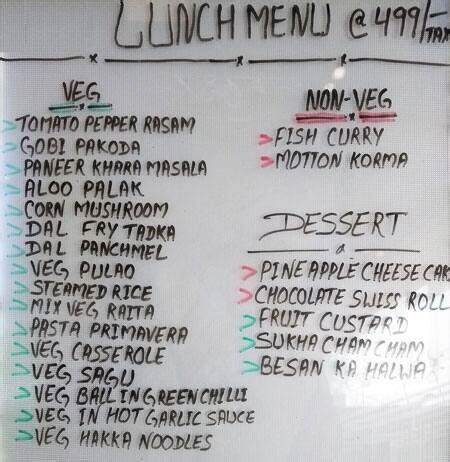 LUNCH MENU @ 499/-
TAX
VEG
TOMATO PEPPER RASAM
GOBI PAKODA
PANEER KHARA MASALA
ALOO PALAK
CORN MUSHROOM
DAL FRY TADKA
DAL PANCHMEL
VEG PULAO
STEAMED RICE
MIX VEG RAITA
PASTA PRIMAVERA
VEG CASSEROLE
VEG SAGU
VEG BALL IN GREEN CHILLI
VEG IN HOT GARLIC SAUCE
VEG HAKKA NOODLES
NON-VEG
FISH CURRY
MOTTON KORMA
DESSERT
PINEAPPLE CHEESE CAK
CHOCOLATE SWISS ROLL
FRUIT CUSTARD
SUKHA CHAM CHAM
BESAN KA HALWA